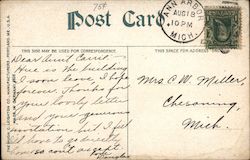 75¢
Post Card
ANN ARBOR
AUG 18
10 PM
MICH.
THIS SIDE MAY BE USED FOR CORRESPONDENCE.
THIS SPACE FOR ADDRESS
Dear Aunt Carrie.
Here is the building
I soon leave, I hope
forever. Thanks for
your lovely letter
and your generous
invitation but I feel
I have to go directly
home so can't accept.
Mrs. C. W. Meller,
Chesaning
Mich.